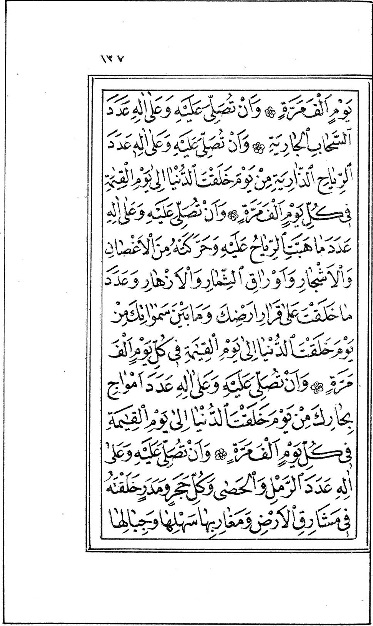 ١٣٧
يَوْمٍ اَلْفَ مَرَّةٍ ۞ وَاَنْ تُصَلِّىَ عَلَيْهِ وَعَلٰى اٰلِهِ عَدَدَ
السَّحَابِ الْجَارِيَةِ ۞ وَاَنْ تُصَلِّىَ عَلَيْهِ وَعَلٰى اٰلِهِ عَدَدَ
الرِّيَاحِ الذَّارِيَةِ مِنْ يَوْمِ خَلَقْتَ الدُّنْيَا اِلٰى يَوْمِ الْقِيٰمَةِ
فِى كُلِّ يَوْمٍ اَلْفَ مَرَّةٍ ۞ وَاَنْ تُصَلِّىَ عَلَيْهِ وَعَلٰى اٰلِهِ
عَدَدَ مَا هَبَّتِ الرِّيَاحُ عَلَيْهِ وَحَرَّكَتْهُ مِنَ الْاَغْصَانِ
وَالْاَشْجَارِ وَاَوْرَاقِ الثِّمَارِ وَالْاَزْهَارِ وَعَدَدَ
مَا خَلَقْتَ عَلٰى قَرَارِ اَرْضِكَ وَمَا بَيْنَ سَمٰوَاتِكَ مِنْ
يَوْمِ خَلَقْتَ الدُّنْيَا اِلٰى يَوْمِ الْقِيٰمَةِ فِى كُلِّ يَوْمٍ اَلْفَ
مَرَّةٍ ۞ وَاَنْ تُصَلِّىَ عَلَيْهِ وَعَلٰى اٰلِهِ عَدَدَ اَمْوَاجِ
بِحَارِكَ مِنْ يَوْمِ خَلَقْتَ الدُّنْيَا اِلٰى يَوْمِ الْقِيٰمَةِ
فِى كُلِّ يَوْمٍ اَلْفَ مَرَّةٍ ۞ وَاَنْ تُصَلِّىَ عَلَيْهِ وَعَلٰى
اٰلِهِ عَدَدَ الرَّمْلِ وَالْحَصٰى وَكُلِّ حَجَرٍ وَمَدَرٍ خَلَقْتَهُ
فِى مَشَارِقِ الْاَرْضِ وَمَغَارِبِهَا سَهْلِهَا وَجِبَالِهَا